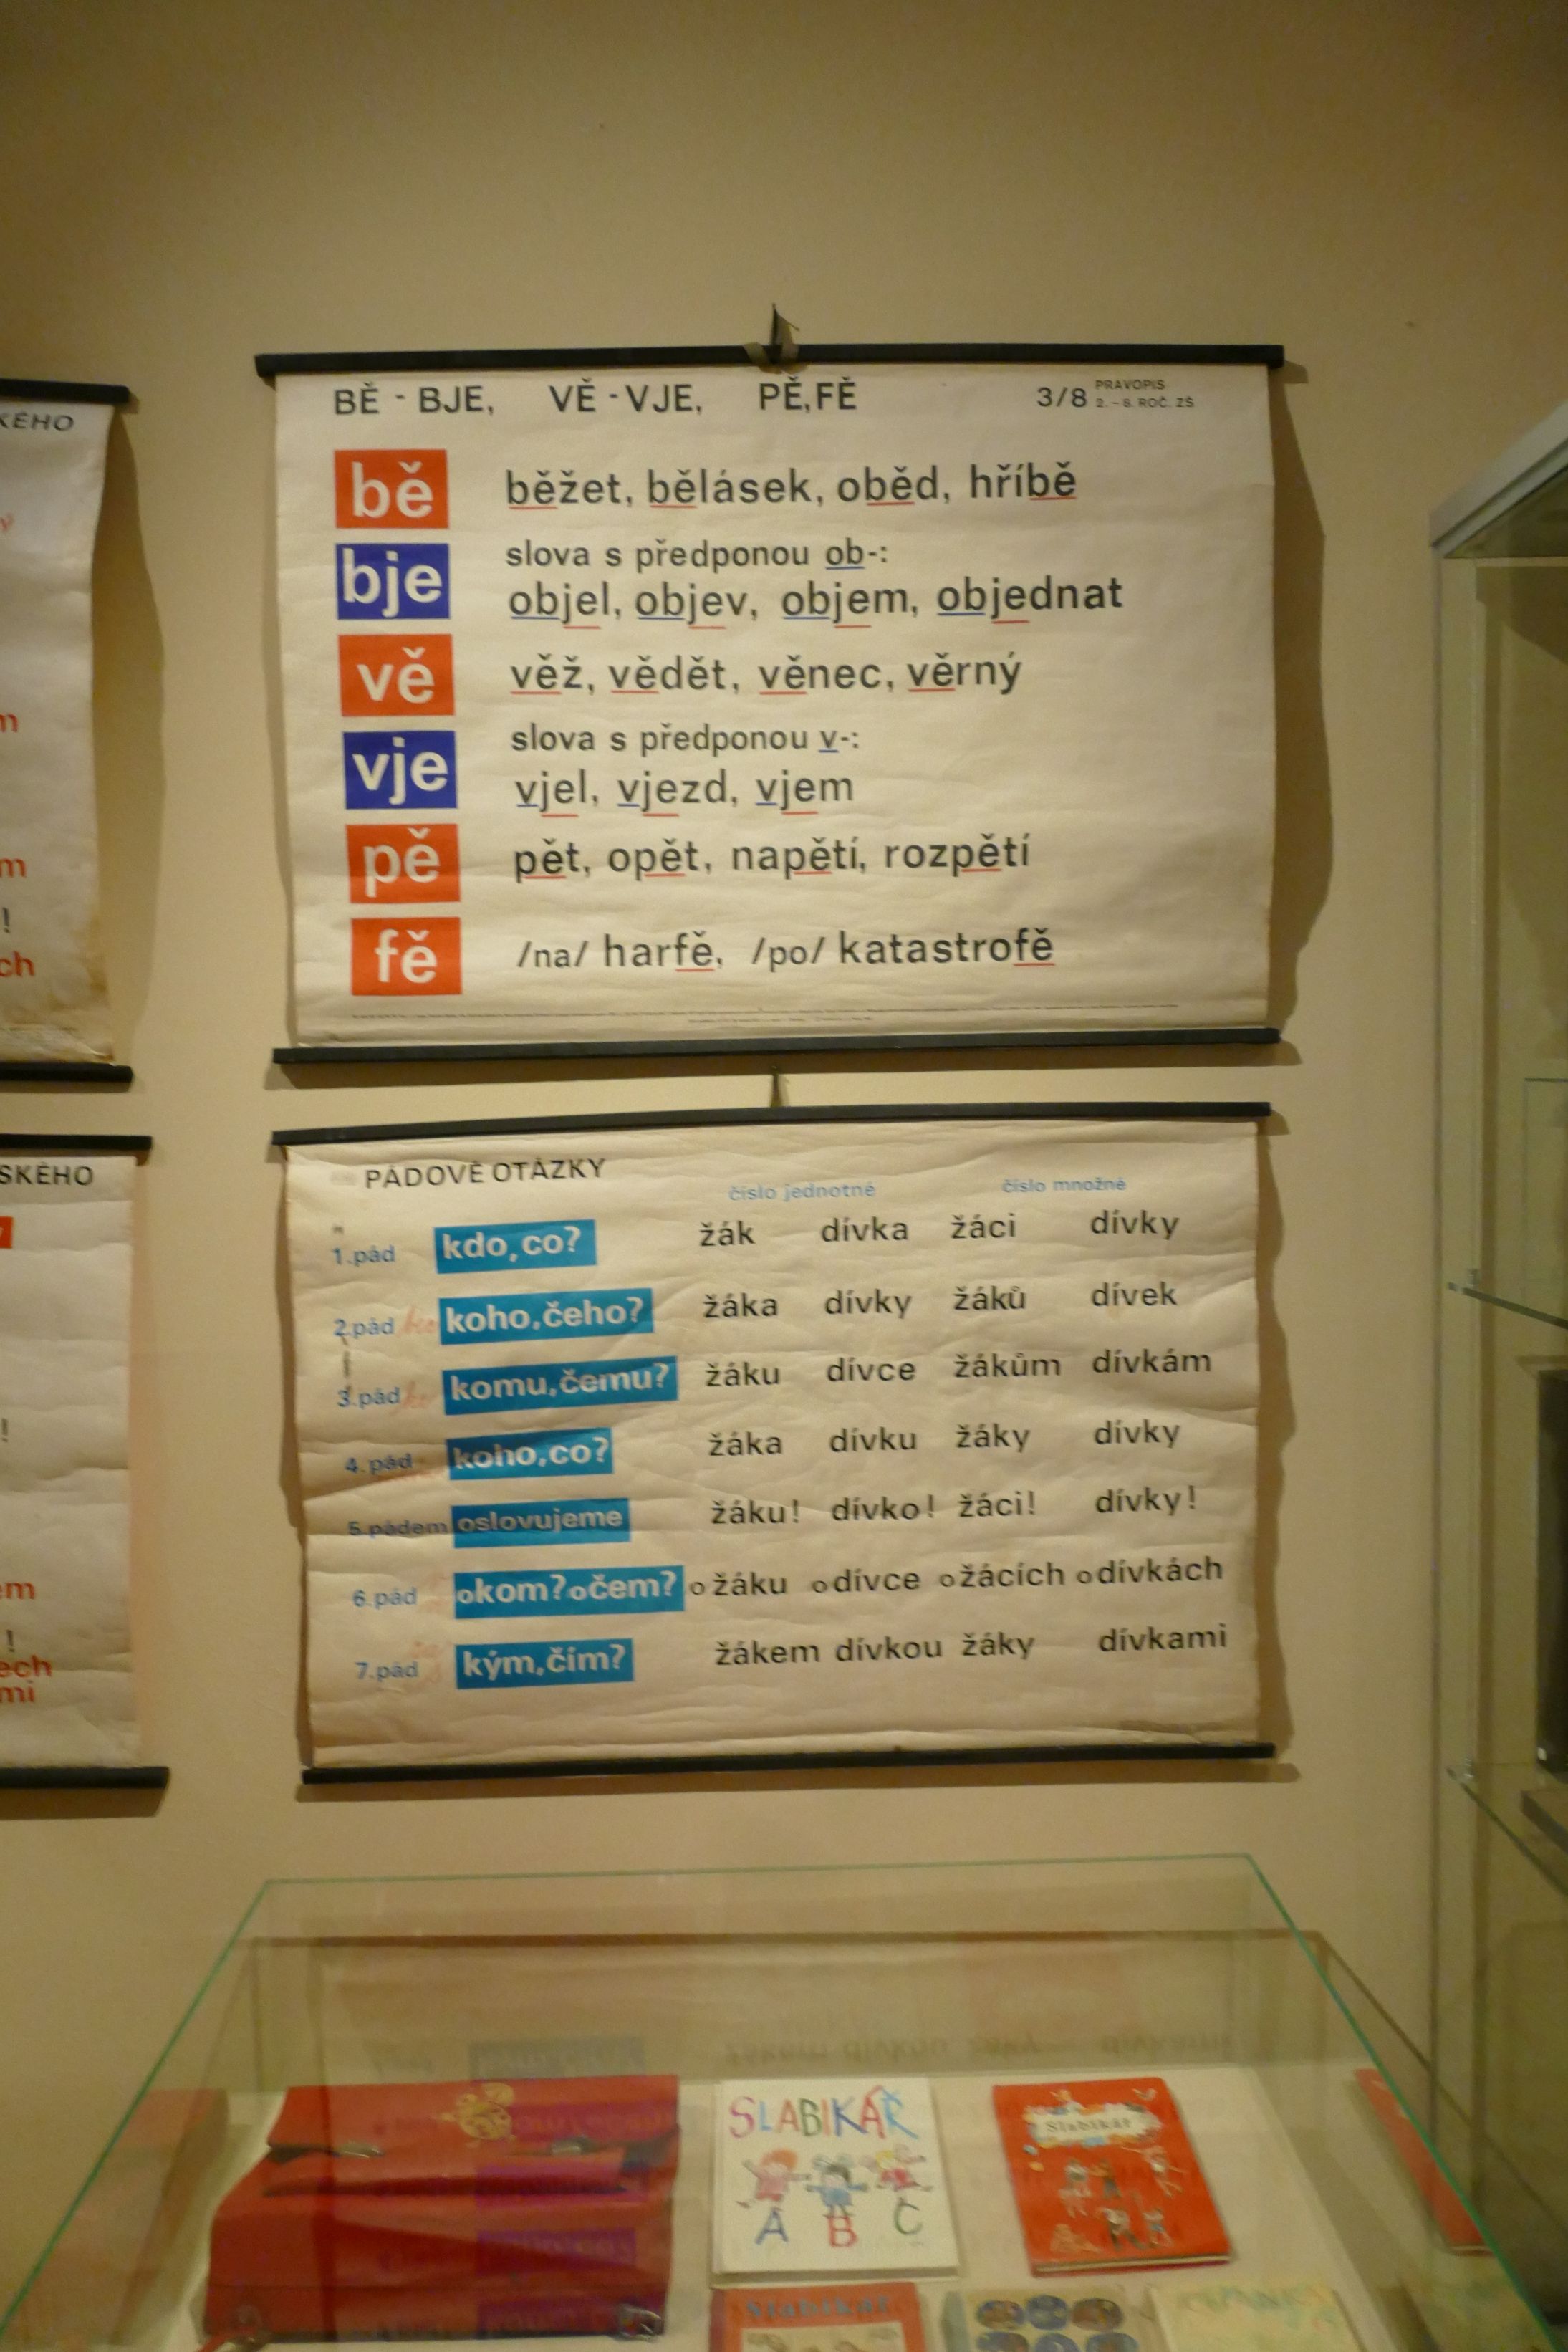 KÉHO
m
m
!
ch
SKÉHO
!
em
!
ech
mi
BĚ - BJE, VĚ - VJE, PĚ, FĚ
3/8 PRAVOPIS
2. - 8. ROČ. ZŠ
bě běžet, bělásek, oběd, hříbě
bje slova s předponou ob-:
objel, objev, objem, objednat
vě věž, vědět, věnec, věrný
vje slova s předponou v-:
vjel, vjezd, vjem
pě pět, opět, napětí, rozpětí
fě /na/ harfě, /po/ katastrofě
PÁDOVÉ OTÁZKY
číslo jednotné číslo množné
1. pád kdo, co? žák dívka žáci dívky
2. pád koho, čeho? žáka dívky žáků dívek
3. pád komu, čemu? žáku dívce žákům dívkám
4. pád koho, co? žáka dívku žáky dívky
5. pádem oslovujeme žáku! dívko! žáci! dívky!
6. pád o kom? o čem? o žáku o dívce o žácích o dívkách
7. pád kým, čím? žákem dívkou žáky dívkami
SLABIKÁŘ
A B C
Slabikář
Slabikář